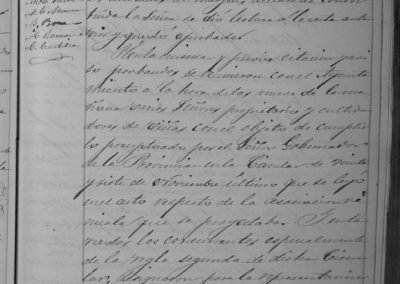 nida la Sesion se dió lectura al acta ante
rior y quedó aprobada.
En la misma y previa citacion y avi
so por bandos se reunieron con el Ayunta
miento a la hora de las nueve de la ma
ñana varios Señores propietarios y cultiva
dores de viñas con el objeto de cumplir
lo preceptuado por el Señor Gobernador
de la Provincia en la Circular de veinte
y siete de Noviembre último que se leyó
en el acto respecto de la Asociacion vi
nicola que se proyectaba. Y ente
rados los concurrentes especialmente
de la regla segunda de dicha Circu
lar, designaron para la representacion